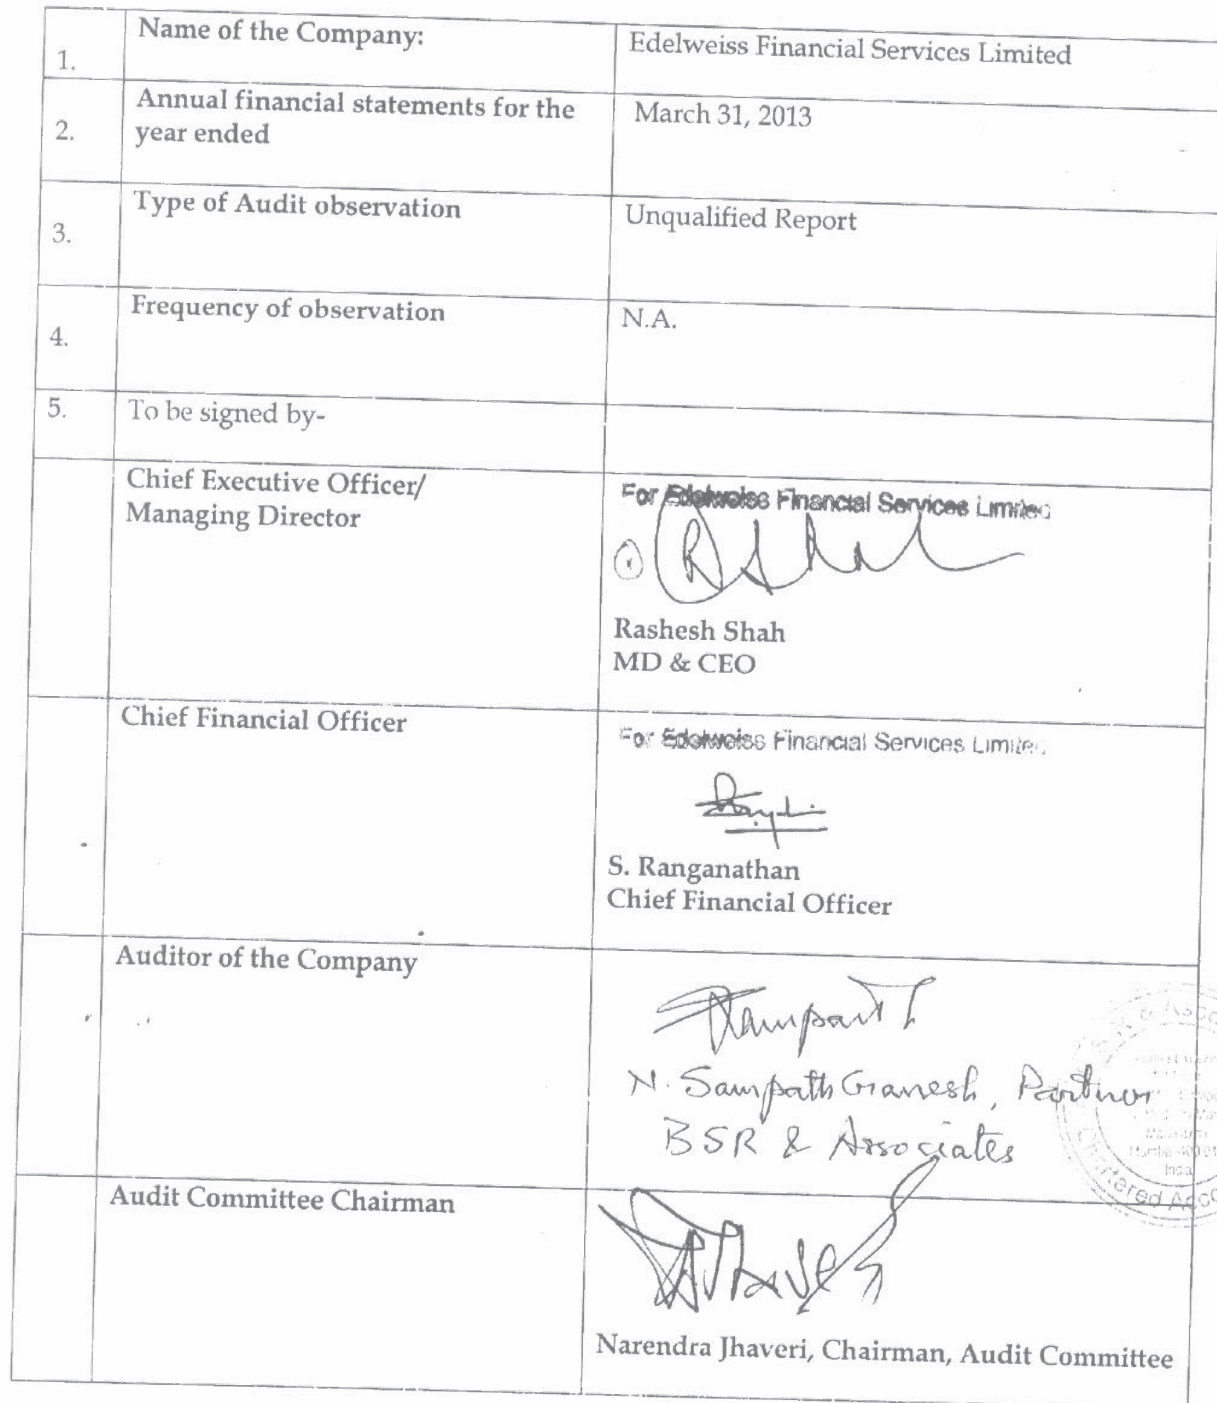 1.
Name of the Company:
Edelweiss Financial Services Limited
2.
Annual financial statements for the
year ended
March 31, 2013
3.
Type of Audit observation
Unqualified Report
4.
Frequency of observation
N.A.
5.
To be signed by-
Chief Executive Officer/
Managing Director
For Edelweiss Financial Services Limited
Rashesh Shah
MD & CEO
Chief Financial Officer
For Edelweiss Financial Services Limited
S. Ranganathan
Chief Financial Officer
Auditor of the Company
N. Sampath Ganesh, Partner
BSR & Associates
Audit Committee Chairman
Narendra Jhaveri, Chairman, Audit Committee